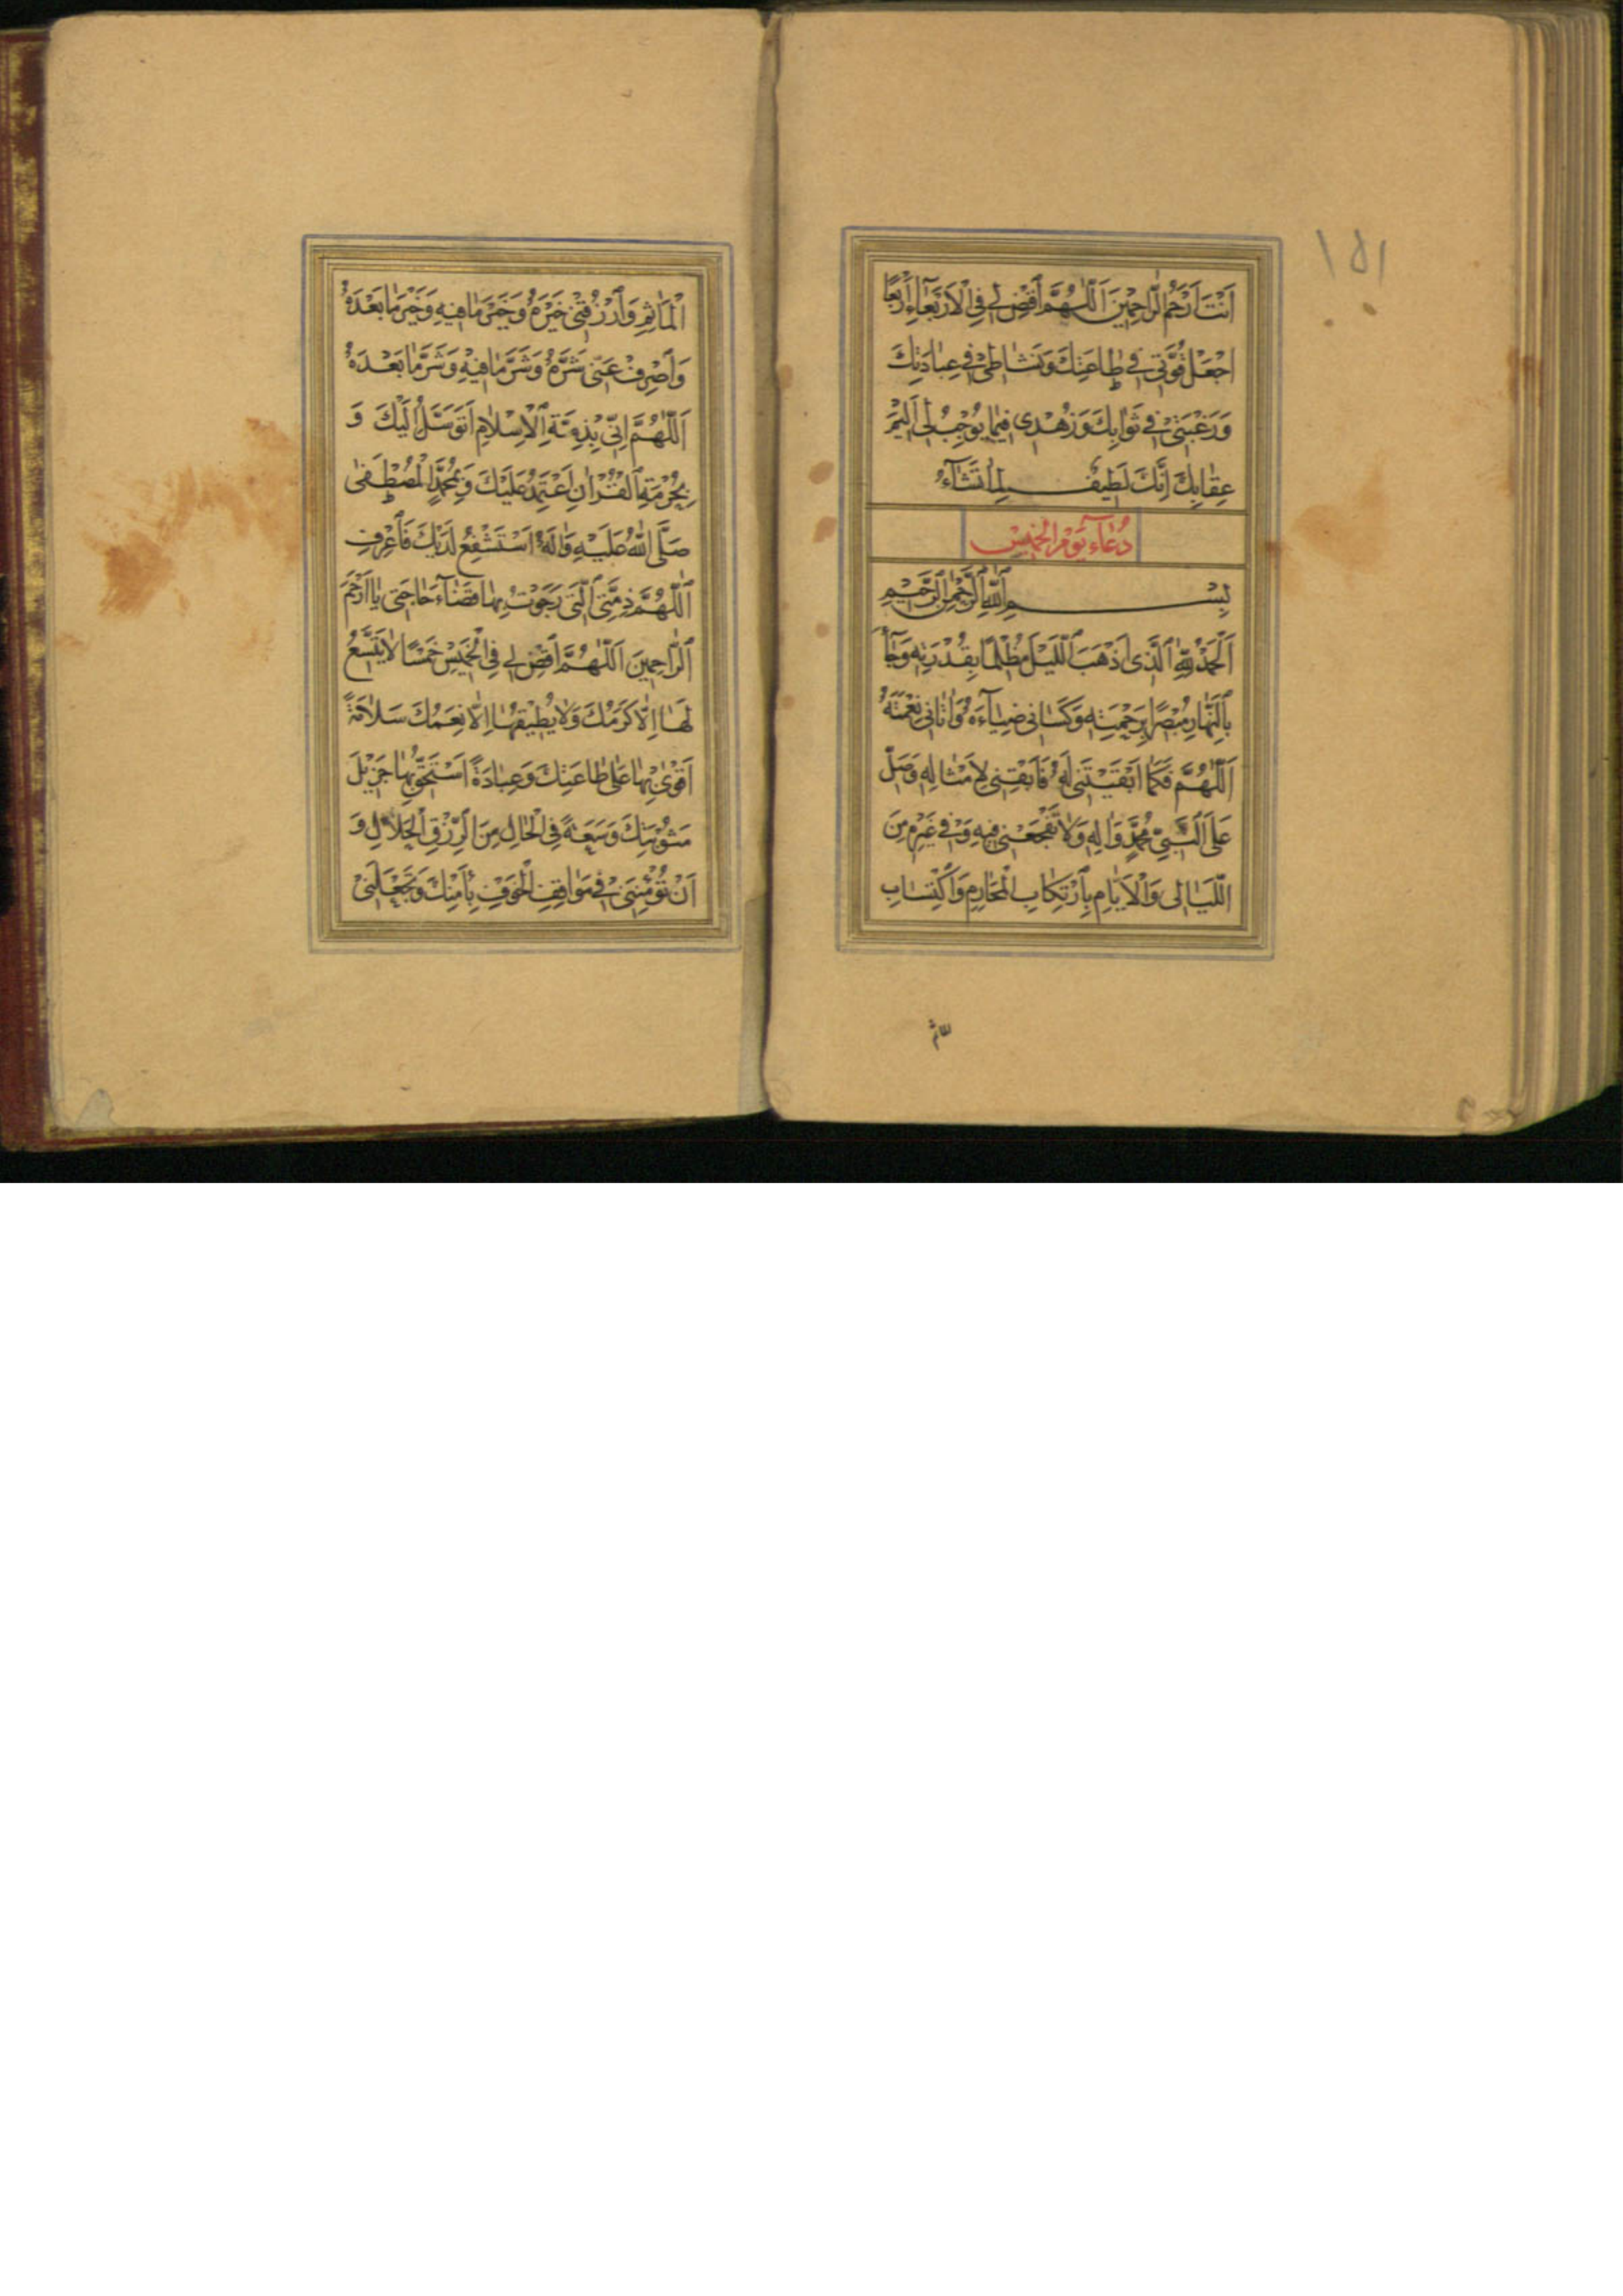 ١٥١
اَنْتَ اَرْحَمُ الرّاحِمْينَ اَللّٰهُمَّ اَقْضِ لي فِي الْاَرْبَعٰاءِ اَرْبَعًا
اجْعَلْ قُوَّتي في طٰاعَتِكَ وَنَشٰاطيْ في عِبٰادَتِكَ
وَرَغْبَتيْ في ثَوٰابِكَ وَزُهْدى فيمٰا يُوْجِبُ لى اَليمَ
عِقٰابِكَ اِنَّكَ لَطيفٌ لِمٰا تَشٰآءُ
دُعٰاءِ يَوْمِ الْخَميْسْ
بِسْمِ اللّٰهِ الرَّحْمٰنِ الرَّحْيمِ
اَلْحَمْدُ لِلّٰهِ الَّذى اَذْهَبَ اللَّيْلَ مُظْلِمًا بِقُدْرَتِهِ وَجٰآءَ
بِالنَّهٰارِ مُبْصِرًا بِرَحْمَتِهِ وَكَسٰانى ضِيٰآءَهُ وَاٰتٰانى نِعْمَتَهُ
اَللّٰهُمَّ فَكَمٰا اَبْقَيْتَنى لَهُ فَاَبْقِنى لِاَمْثٰالِهِ وَصَلِّ
عَلَى النَّبِيِّ مُحَمَّدٍ وَاٰلِهِ وَلاٰ تَفْجَعْنى فيهِ وَفي غَيْرِهِ مِنَ
اللَّيٰالى وَالْاَيّٰامِ بِارْتِكٰابِ الْمَحٰارِمِ وَاكْتِسٰابِ
الْمَاٰثِمِ وَارْزُقْنيْ خَيْرَهُ وَخَيْرَ مٰا فيهِ وَخَيْرَ مٰا بَعْدَهُ
وَاصْرِفْ عَنّى شَرَّهُ وَشَرَّ مٰا فيْهِ وَشَرَّ مٰا بَعْدَهُ
اَللّٰهُمَّ اِنّى بِذِمَّةِ الْاِسْلاٰمِ اَتَوَسَّلُ اِلَيْكَ وَ
بِحُرْمَةِ الْقُرْاٰنِ اَعْتَمِدُ عَلَيْكَ وَبِمُحَمَّدٍ الْمُصْطَفٰى
صَلَّى اللّٰهُ عَلَيْهِ وَاٰلِهِ اَسْتَشْفِعُ لَدَيْكَ فَاعْرِفِ
اللّٰهُمَّ ذِمَّتِىَ الَّتى رَجَوْتُ بِهٰا قَضٰآءَ حٰاجَتى يٰا اَرْحَمَ
الرّٰاحِمينَ اَللّٰهُمَّ اقْضِ لي فِي الْخَميْسِ خَمْسًا لاٰ يَتَّسِعُ
لَهٰا اِلّاٰ كَرَمُكَ وَلاٰ يُطيْقُهٰا اِلّاٰ نِعَمُكَ سَلاٰمَةً
اَقْوٰى بِهٰا عَلٰى طٰاعَتِكَ وَعِبٰادَةً اَسْتَحِقُّ بِهٰا جَزيْلَ
مَثُوْبَتِكَ وَسَعَةً فِى الْحٰالِ مِنَ الرِّزْقِ الْحَلاٰلِ وَ
اَنْ تُؤْمِنَنيْ في مَوٰاقِفِ الْخَوْفِ بِاَمْنِكَ وَتَجْعَلَنيْ